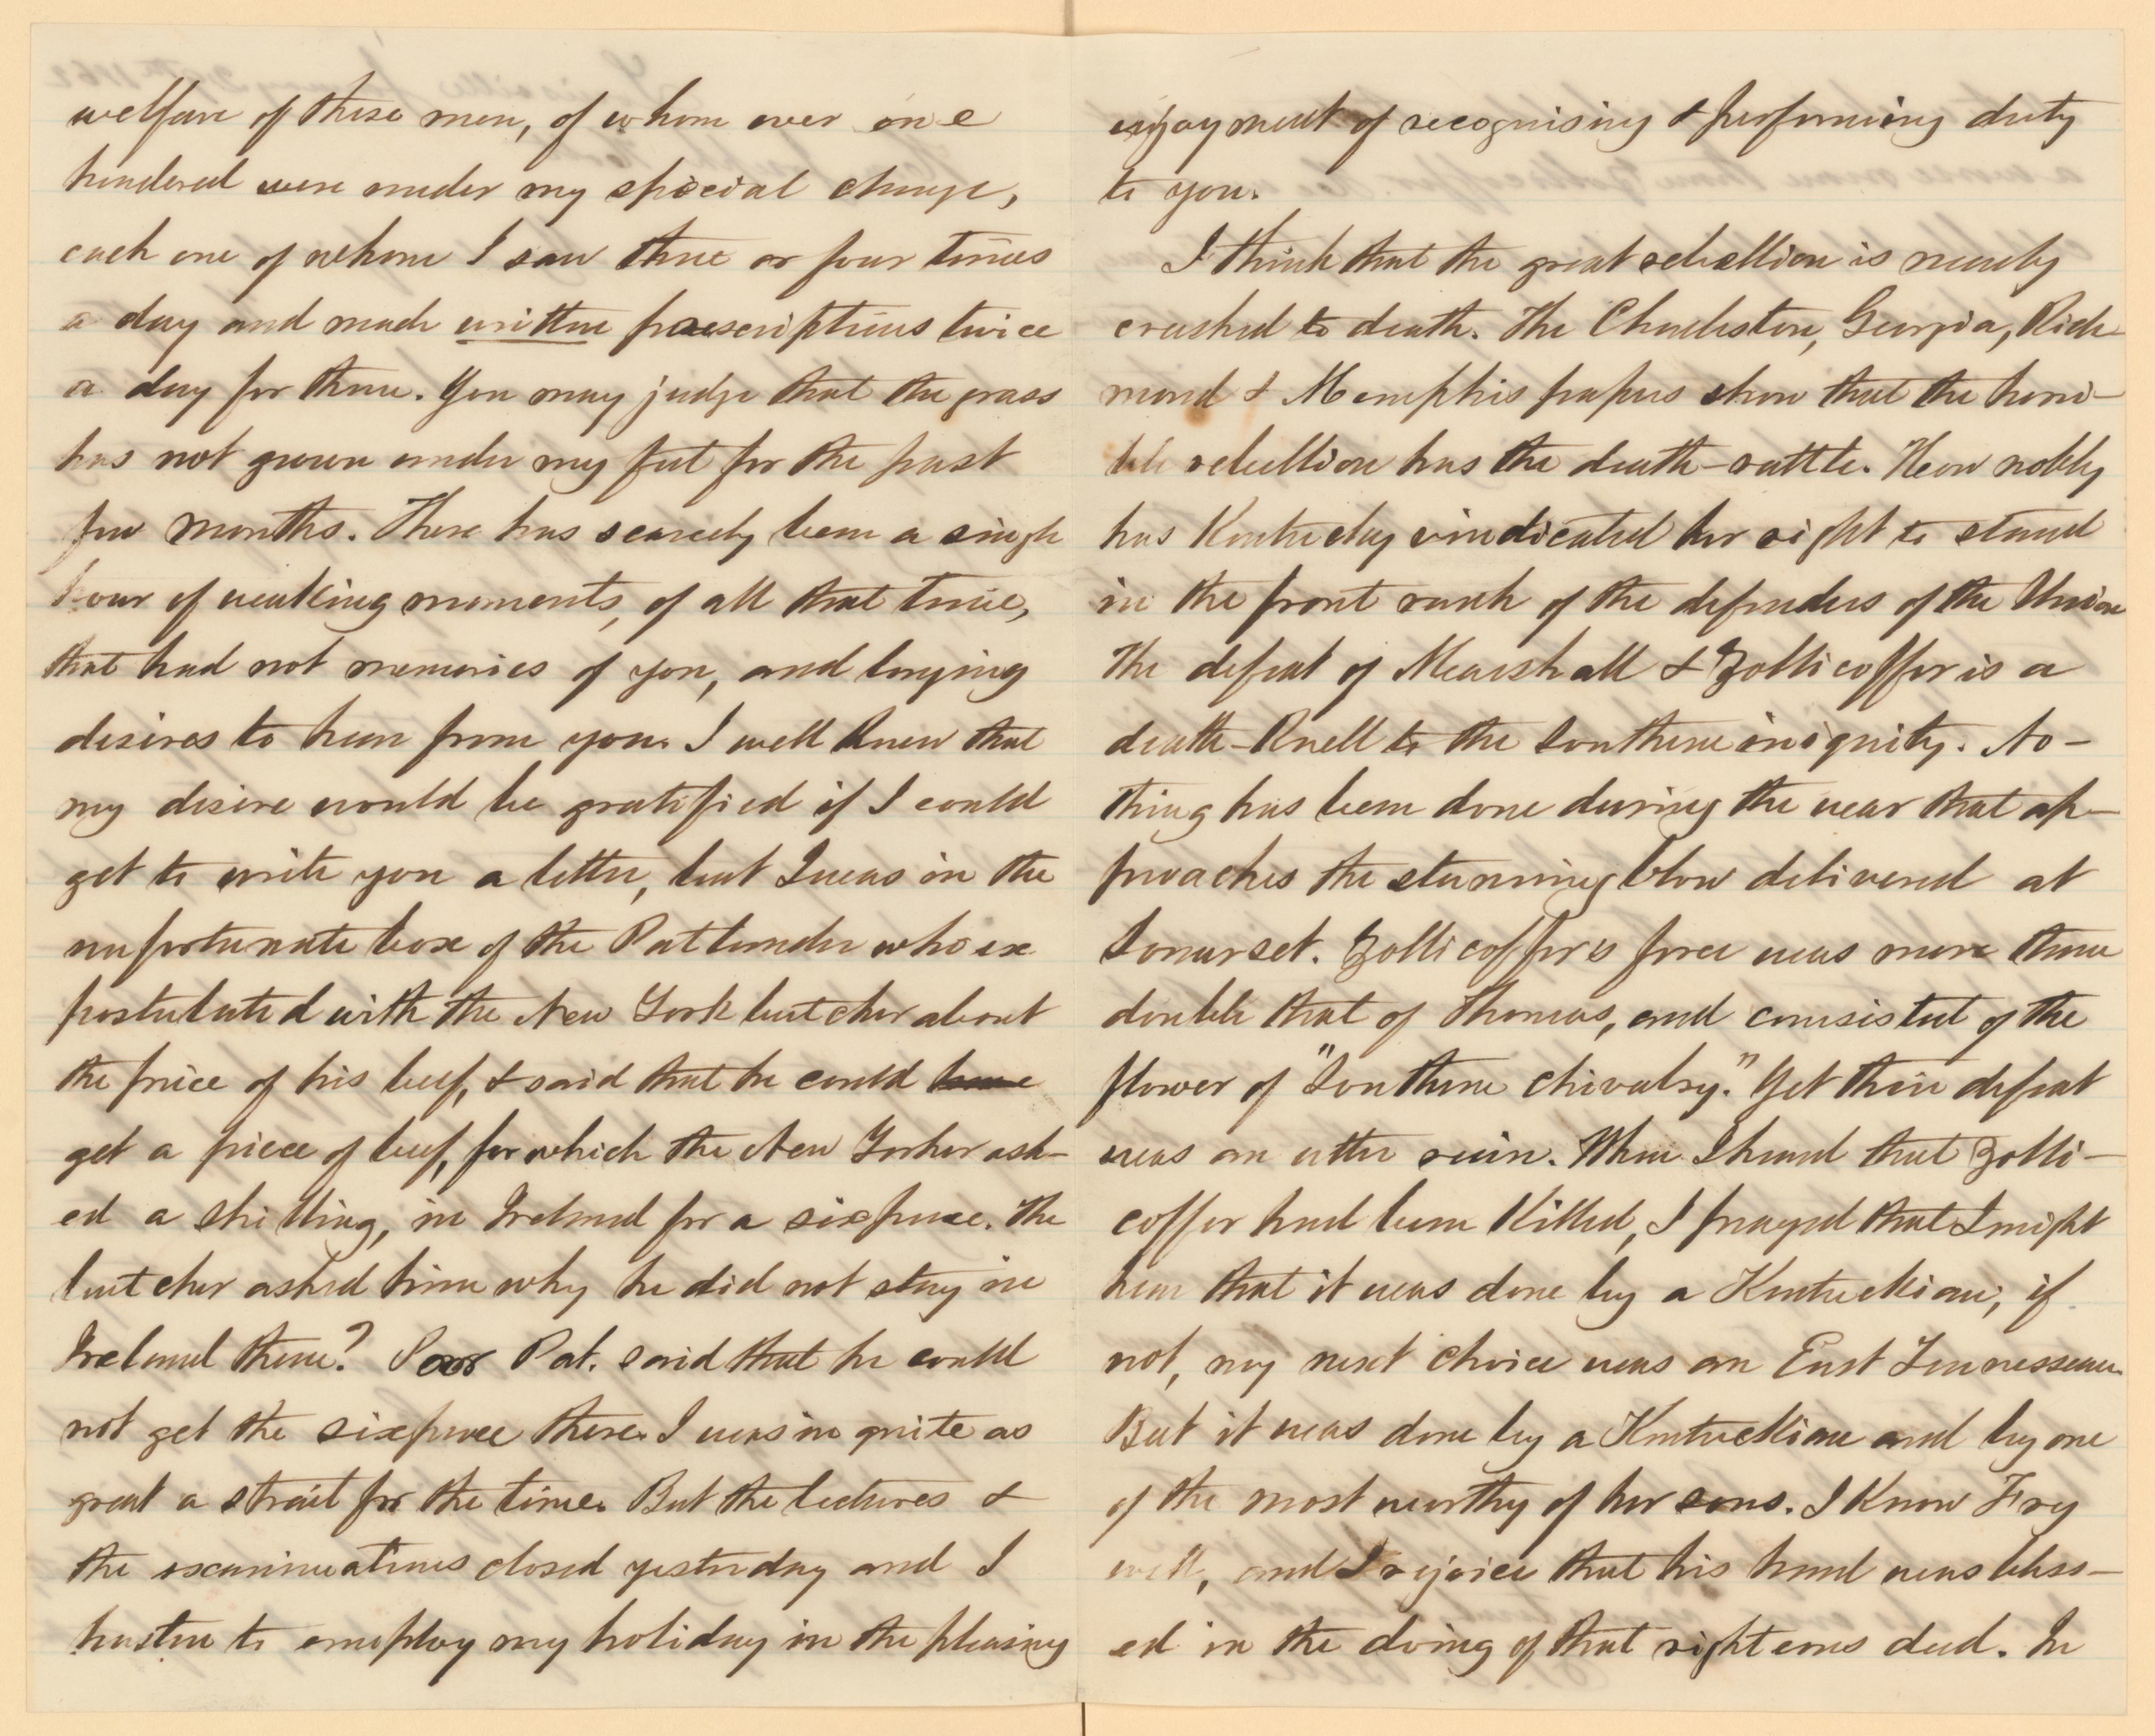 welfare of these men, of whom over one
hundered were under my special charge,
each one of whom I saw three or four times
a day and made written prescriptions twice
a day for them. You may judge that the grass
has not grown under my feet for the past
few months. There has scarcely been a single
hour of waking moments, of all that time,
that had not memories of you, and longing
desires to hear from you. I well knew that
my desire would be gratified if I could
get to write you a letter, but I was in the
unfortunate box of the Patlander who ex
postulated with the New York butcher about
the price of his beef, & said that he could have
get a piece of beef, for which the New Yorker ask-
ed a shilling, in Ireland for a sixpence. The
butcher asked him why he did not stay in
Ireland then? Poor Pat. said that he could
not get the sixpence there. I was in quite as
great a strait for the time. But the lectures &
the examinations closed yesterday and I
hasten to employ my holiday in the pleasing
enjoyment of recognising & performing duty
to you.
I think that the great rebellion is nearly
crushed to death. The Charleston, Georgia, Rich-
mond & Memphis papers show that the horri-
ble rebellion has the death-rattle. How nobly
has Kentucky vindicated her right to stand
in the front rank of the defenders of the Union
The defeat of Mearshall & Zollicoffer is a
death-knell to the Southern iniquity. No-
thing has been done during the war that ap-
proaches the stunning blow delivered at
Somerset. Zollicoffer's force was more than
double that of Thomas, and consisted of the
flower of "Southern Chivalry." Yet their defeat
was an utter ruin. When I heard that Zolli-
coffer had been killed, I prayed that I might
hear that it was done by a Kentuckian; if
not, my next choice was an East Tennessean.
But it was done by a Kentuckian and by one
of the most worthy of her sons. I know Fry
well, and I rejoice that his hand was bless-
ed in the doing of that righteous deed. In